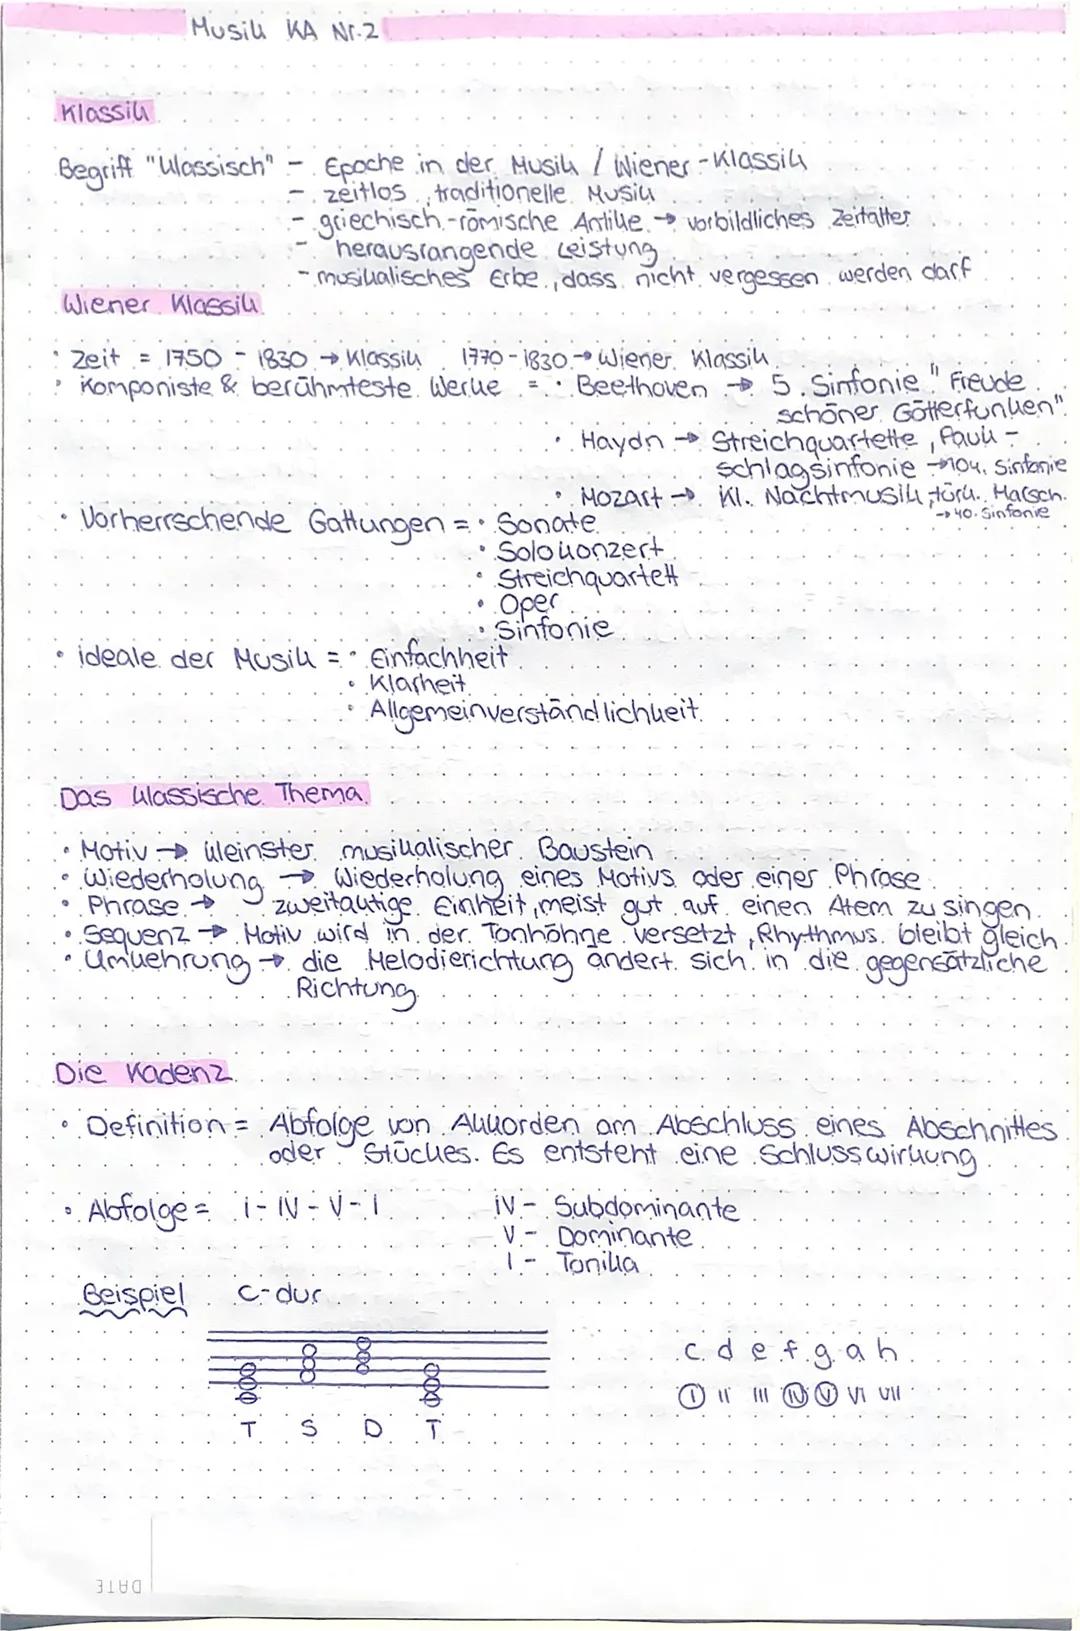 Musik KA Nr.2
Klassik
Begriff "klassisch" - Epoche in der Musik / Wiener-Klassik
- zeitlos, traditionelle Musik
- griechisch-römische Antike → vorbildliches Zeitalter
- herausrangende Leistung
- musikalisches Erbe, dass nicht vergessen werden darf
Wiener Klassik
• Zeit = 1750 - 1830 → Klassik 1770-1830 → Wiener Klassik
• Komponiste & berühmteste Werke = • Beethoven → 5. Sinfonie "Freude
schöner Götterfunken"
• Haydn → Streichquartette, Pauk-
schlagsinfonie → 104. Sinfonie
• Mozart → Kl. Nachtmusik, türk. Marsch
→ 40. Sinfonie
• Vorherrschende Gattungen = • Sonate
• Solokonzert
• Streichquartett
• Oper
• Sinfonie
• ideale der Musik = • Einfachheit
• Klarheit
• Allgemeinverständlichkeit
Das klassische Thema
• Motiv → kleinster musikalischer Baustein
• Wiederholung → Wiederholung eines Motivs oder einer Phrase
• Phrase → zweitaktige Einheit, meist gut auf einen Atem zu singen
• Sequenz → Motiv wird in der Tonhöhne versetzt, Rhythmus bleibt gleich
• Umkehrung → die Melodierichtung ändert sich in die gegensätzliche
Richtung
Die Kadenz
• Definition = Abfolge von Akkorden am Abschluss eines Abschnittes
oder Stückes. Es entsteht eine Schlusswirkung
• Abfolge = I - IV - V - I IV - Subdominante
V - Dominante
I - Tonika
Beispiel C-dur
c d e f g a h
I II III IV V VI VII
T S D T
DATE